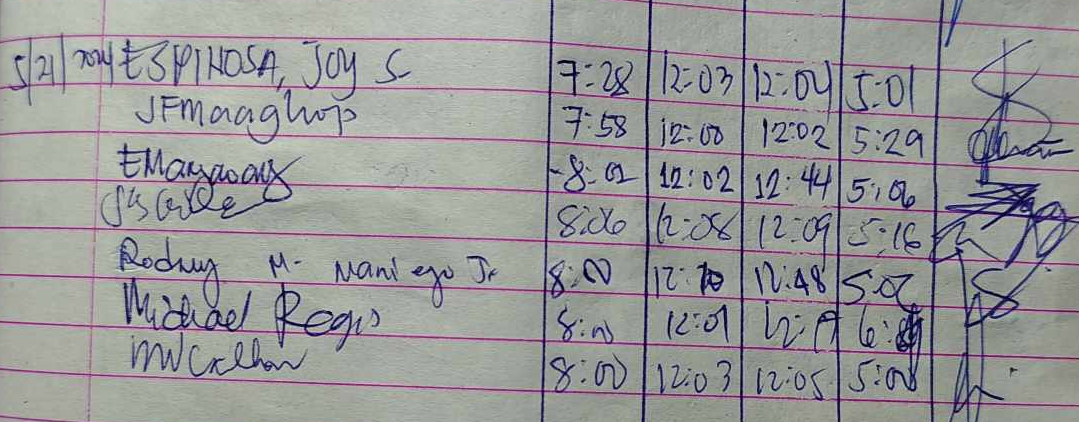 5/21/2024 ESPINOSA, JOY S. 7:28 12:03 12:04 5:01
JFMaaghop 7:58 12:00 12:02 5:29
EMayaoay -8:02 12:02 12:44 5:06
8:06 12:08 12:09 5:16
Rodney M. Maniego Jr 8:00 12:10 12:48 5:02
Michael Regis 8:00 12:01 12:19
8:00 12:03 12:05 5:00